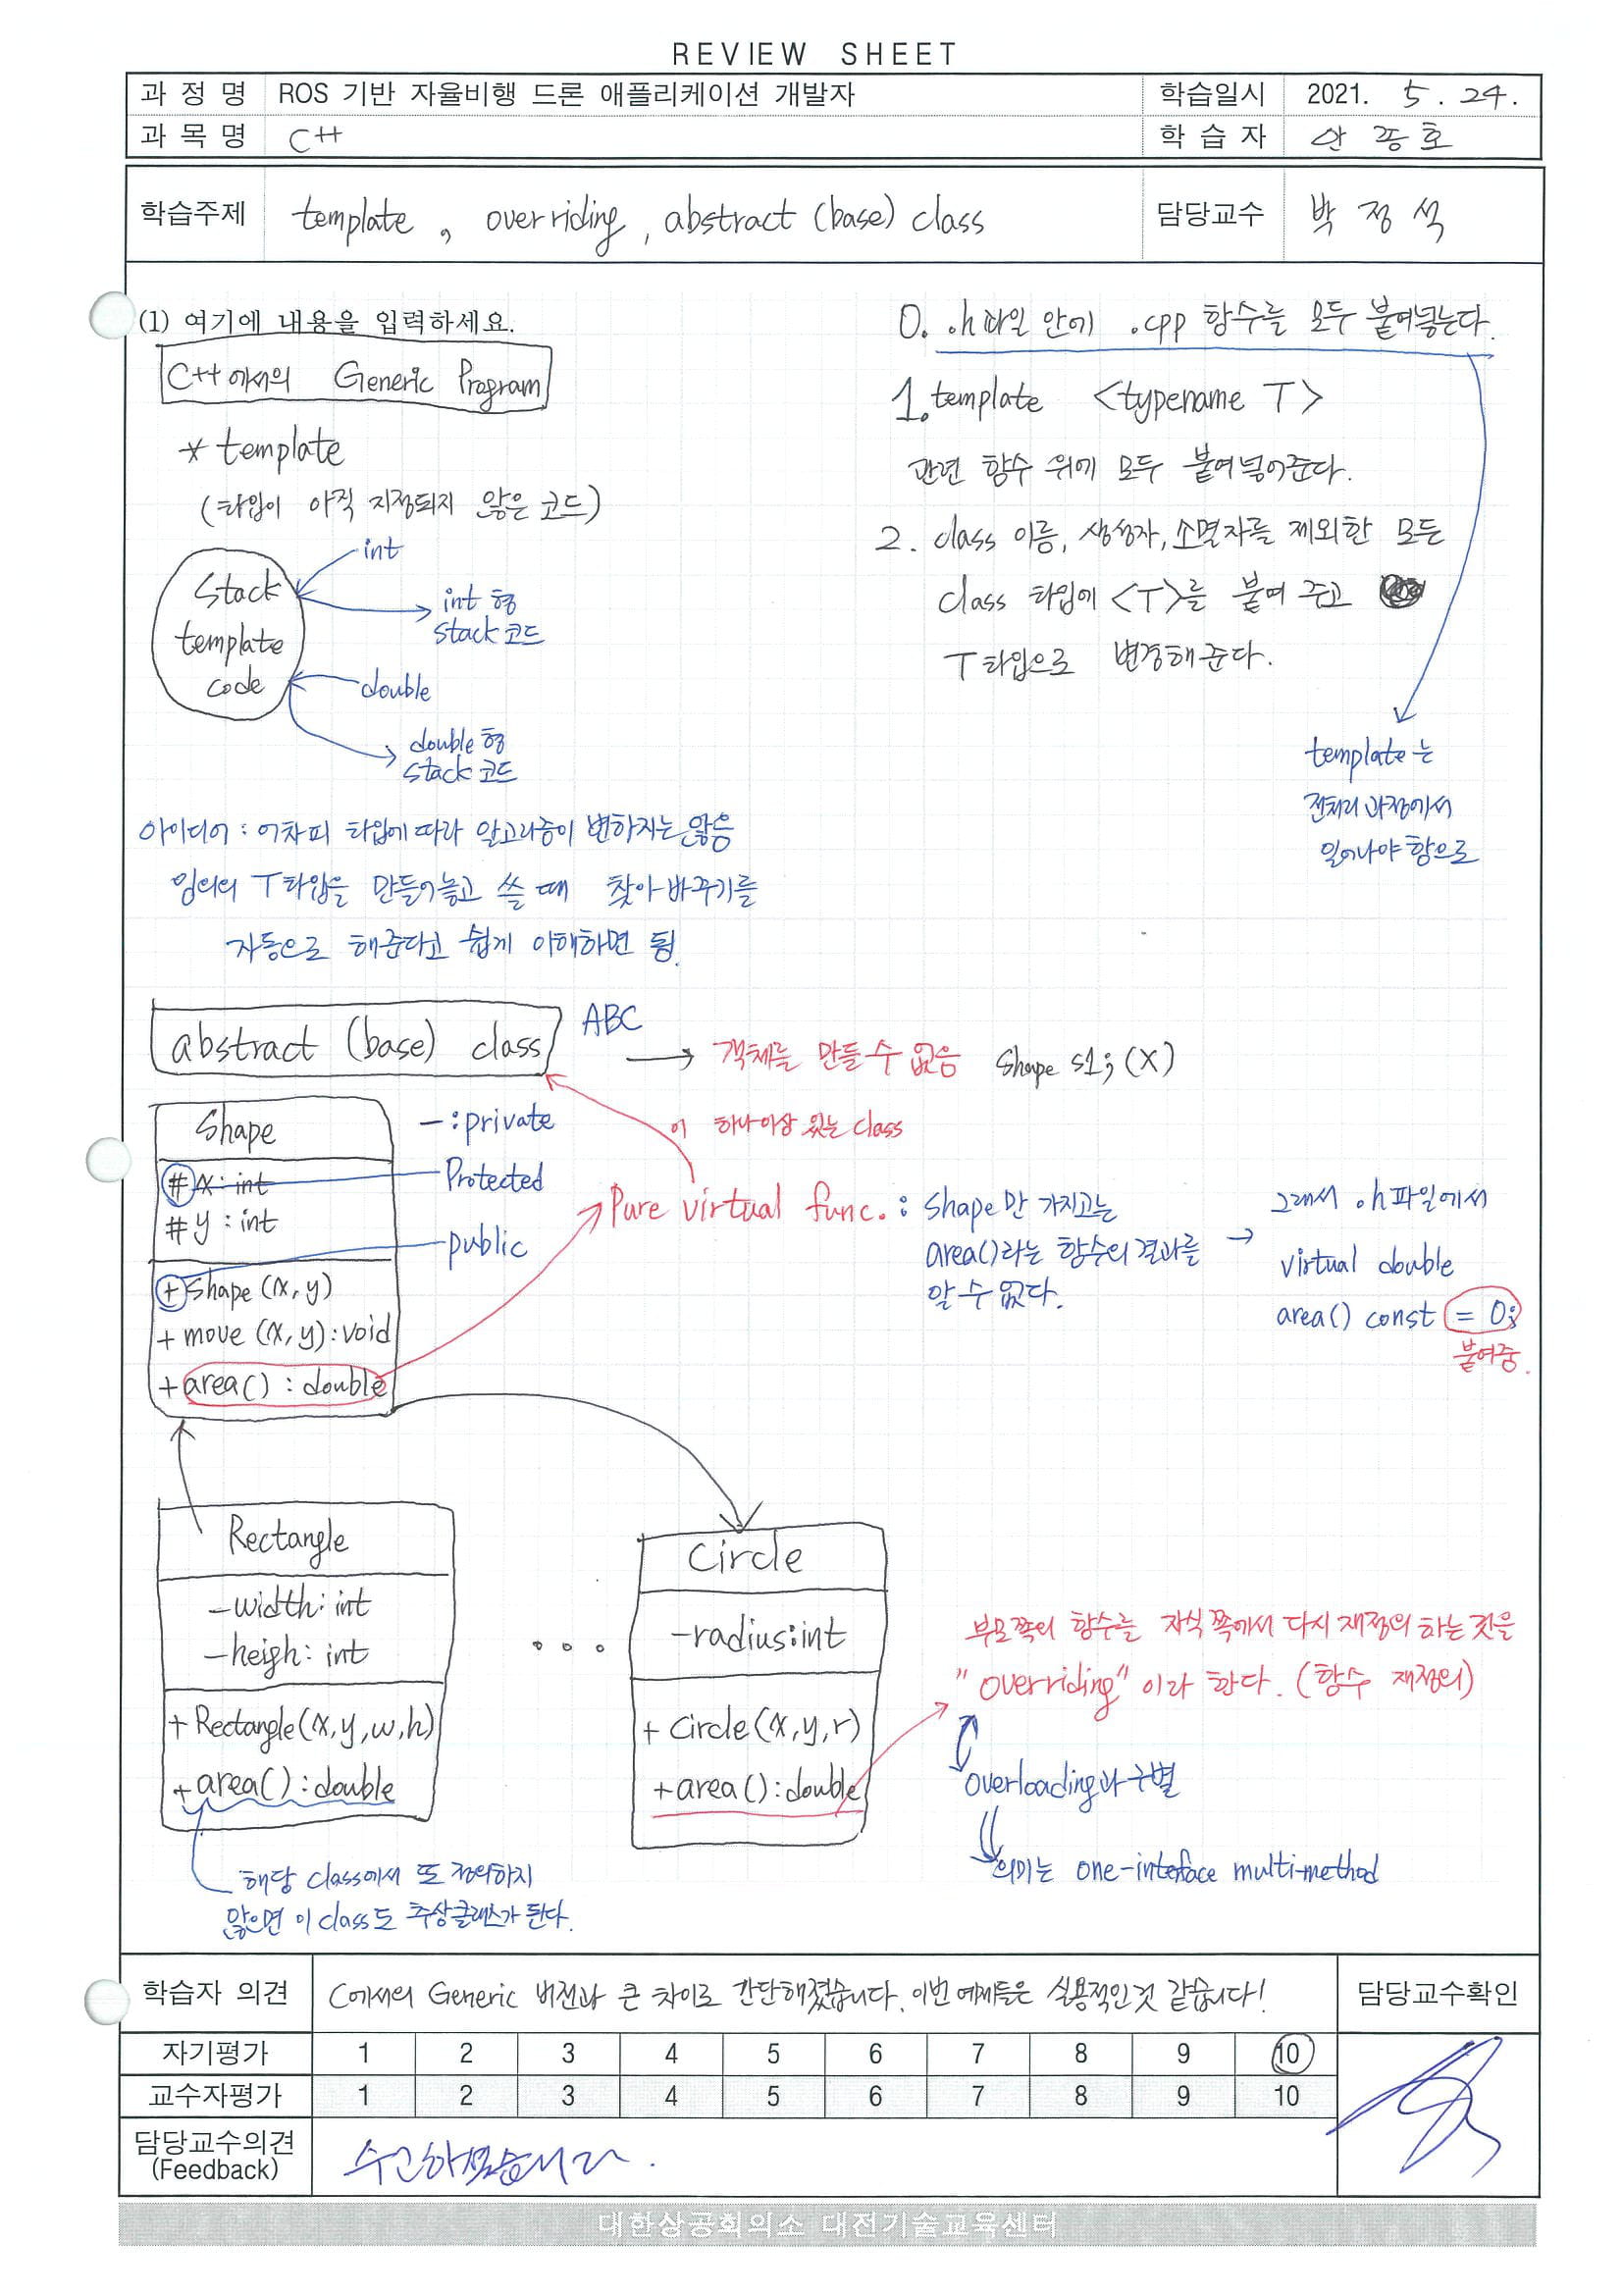 REVIEW SHEET
과 정 명 ROS 기반 자율비행 드론 애플리케이션 개발자 학습일시 2021. 5. 24.
과 목 명 C++ 학 습 자 안 종 호
학습주제 template, overriding, abstract (base) class 담당교수 박 정 석
(1) 여기에 내용을 입력하세요.
C++에서의 Generic Program
* template
(타입이 아직 지정되지 않은 코드)
Stack
template
code
int
int 형
stack 코드
double
double 형
stack 코드
아이디어 : 어차피 타입에 따라 알고리즘이 변하지는 않음
임의의 T타입을 만들어놓고 쓸 때 찾아바꾸기를
자동으로 해준다고 쉽게 이해하면 됨.
0. .h파일 안에 .cpp 함수를 모두 붙여넣는다.
1. template <typename T>
관련 함수 위에 모두 붙여넣어준다.
2. class 이름, 생성자, 소멸자를 제외한 모든
class 타입에 <T>를 붙여 주고
T타입으로 변경해준다.
template는
전처리 과정에서
일어나야 함으로
abstract (base) class
ABC
→ 객체를 만들 수 없음 Shape s1; (X)
이 하나이상 있는 class
Shape
# x : int
# y : int
+ Shape (x, y)
+ move (x, y) : void
+ area() : double
- : private
Protected
public
Pure virtual func. : Shape만 가지고는
area()라는 함수의 결과를
알 수 없다.
→ 그래서 .h파일에서
virtual double
area() const = 0;
붙여줌.
Rectangle
-width: int
-heigh: int
+ Rectangle(x, y, w, h)
+ area() : double
해당 class에서 또 정의하지
않으면 이 class도 추상클래스가 된다.
...
Circle
-radius:int
+ Circle(x, y, r)
+ area() : double
부모쪽의 함수를 자식쪽에서 다시 재정의 하는 것을
"Overriding" 이라 한다. (함수 재정의)
overloading과 구별
의미는 one-interface multi-method
학습자 의견 C에서의 Generic 버전과 큰 차이로 간단해졌습니다. 이번 예제들은 실용적인것 같습니다! 담당교수확인
자기평가 1 2 3 4 5 6 7 8 9 10
교수자평가 1 2 3 4 5 6 7 8 9 10
담당교수의견 수고하셨습니다.
(Feedback)
대한상공회의소 대전기술교육센터